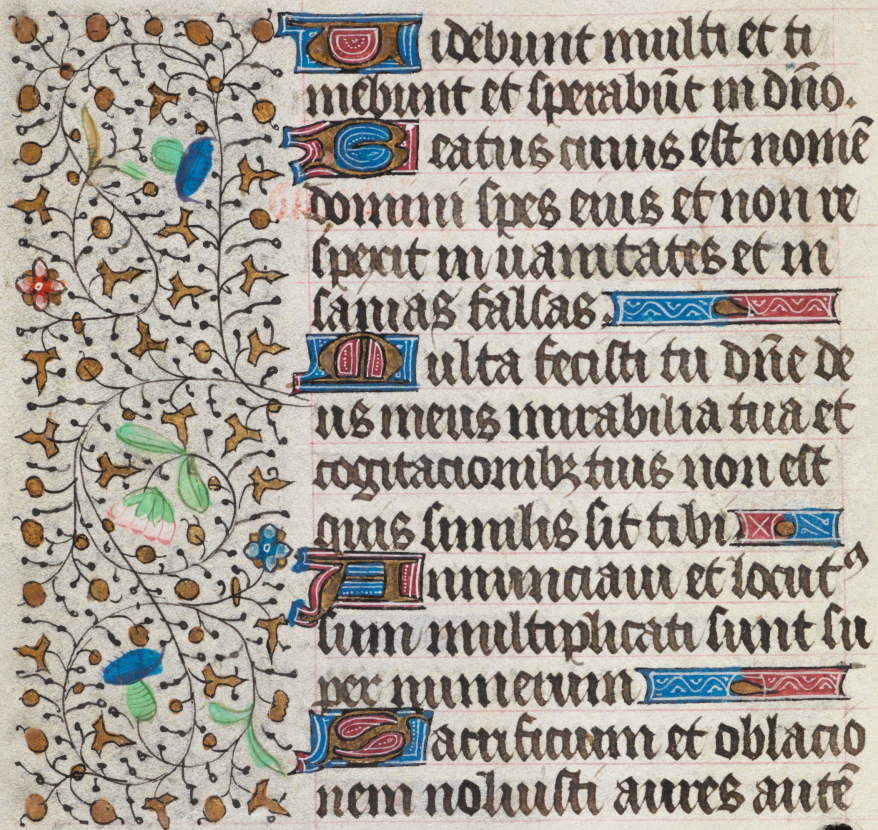 Videbunt multi et ti
mebunt et sperabūt in dn̄o.
Beatus cuius est nomē
domini spes eius et non re
spexit in uanitates et in
sanias falsas.
Multa fecisti tu dn̄e de
us meus mirabilia tua et
cogitacionibꝫ tuis non est
quis similis sit tibi
Annunciaui et locutꝰ
sum multiplicati sunt su
per numerum
Sacrificium et oblacio
nem noluisti aures autē